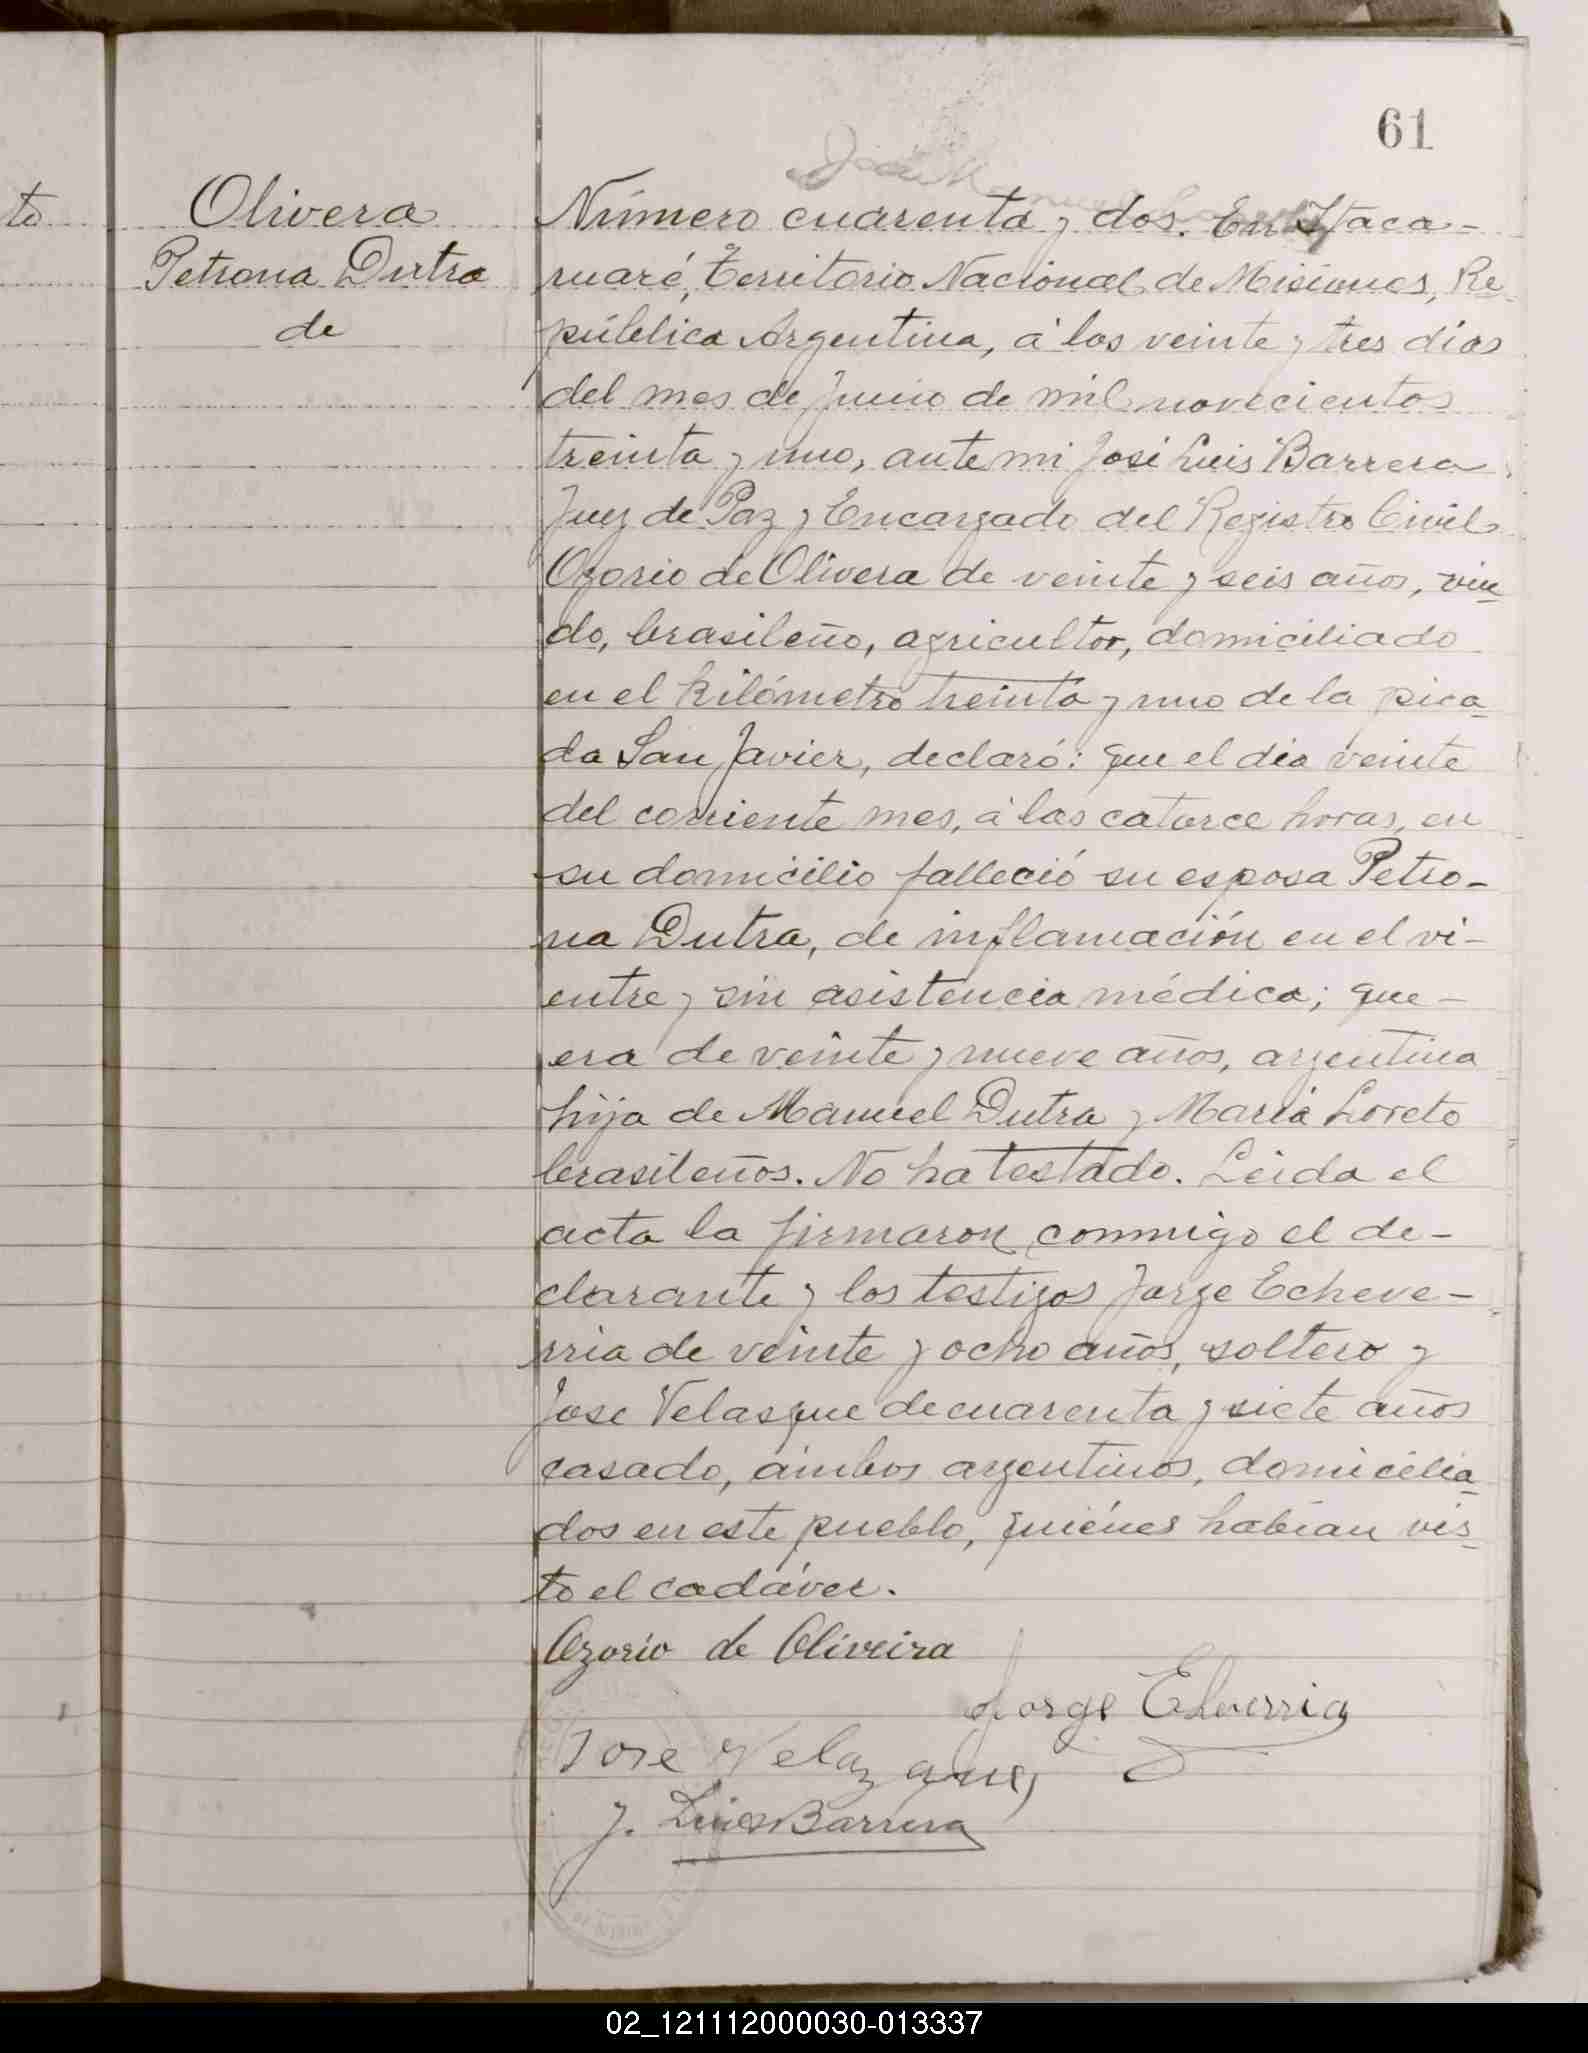 61
to
Olivera
Petrona Dutra
de
Número cuarenta y dos. En Itaca-
ruaré, Territorio Nacional de Misiones, Re-
pública Argentina, á los veinte y tres días
del mes de Junio de mil novecientos
treinta y uno, ante mi José Luis Barrera
Juez de Paz y Encargado del Registro Civil
Ozorio de Olivera de veinte y seis años, viu-
do, brasileño, agricultor, domiciliado
en el kilómetro treinta y uno de la pica-
da San Javier, declaró: que el dia veinte
del corriente mes, á las catorce horas, en
su domicilio falleció su esposa Petro-
na Dutra, de inflamación en el vi-
entre y sin asistencia médica; que-
era de veinte y nueve años, argentina
hija de Manuel Dutra y Maria Loreto
brasileños. No ha testado. Leida el
acta la firmaron conmigo el de-
clarante y los testigos Jorge Echeve-
rria de veinte y ocho años, soltero y
Jose Velasque de cuarenta y siete años
casado, ámbos argentinos, domicilia-
dos en este pueblo, quiénes habían vis-
to el cadáver.
Ozorio de Oliveira
Jorge Eheverria
Jose Velazque
J. Luis Barrera
02_121112000030-013337